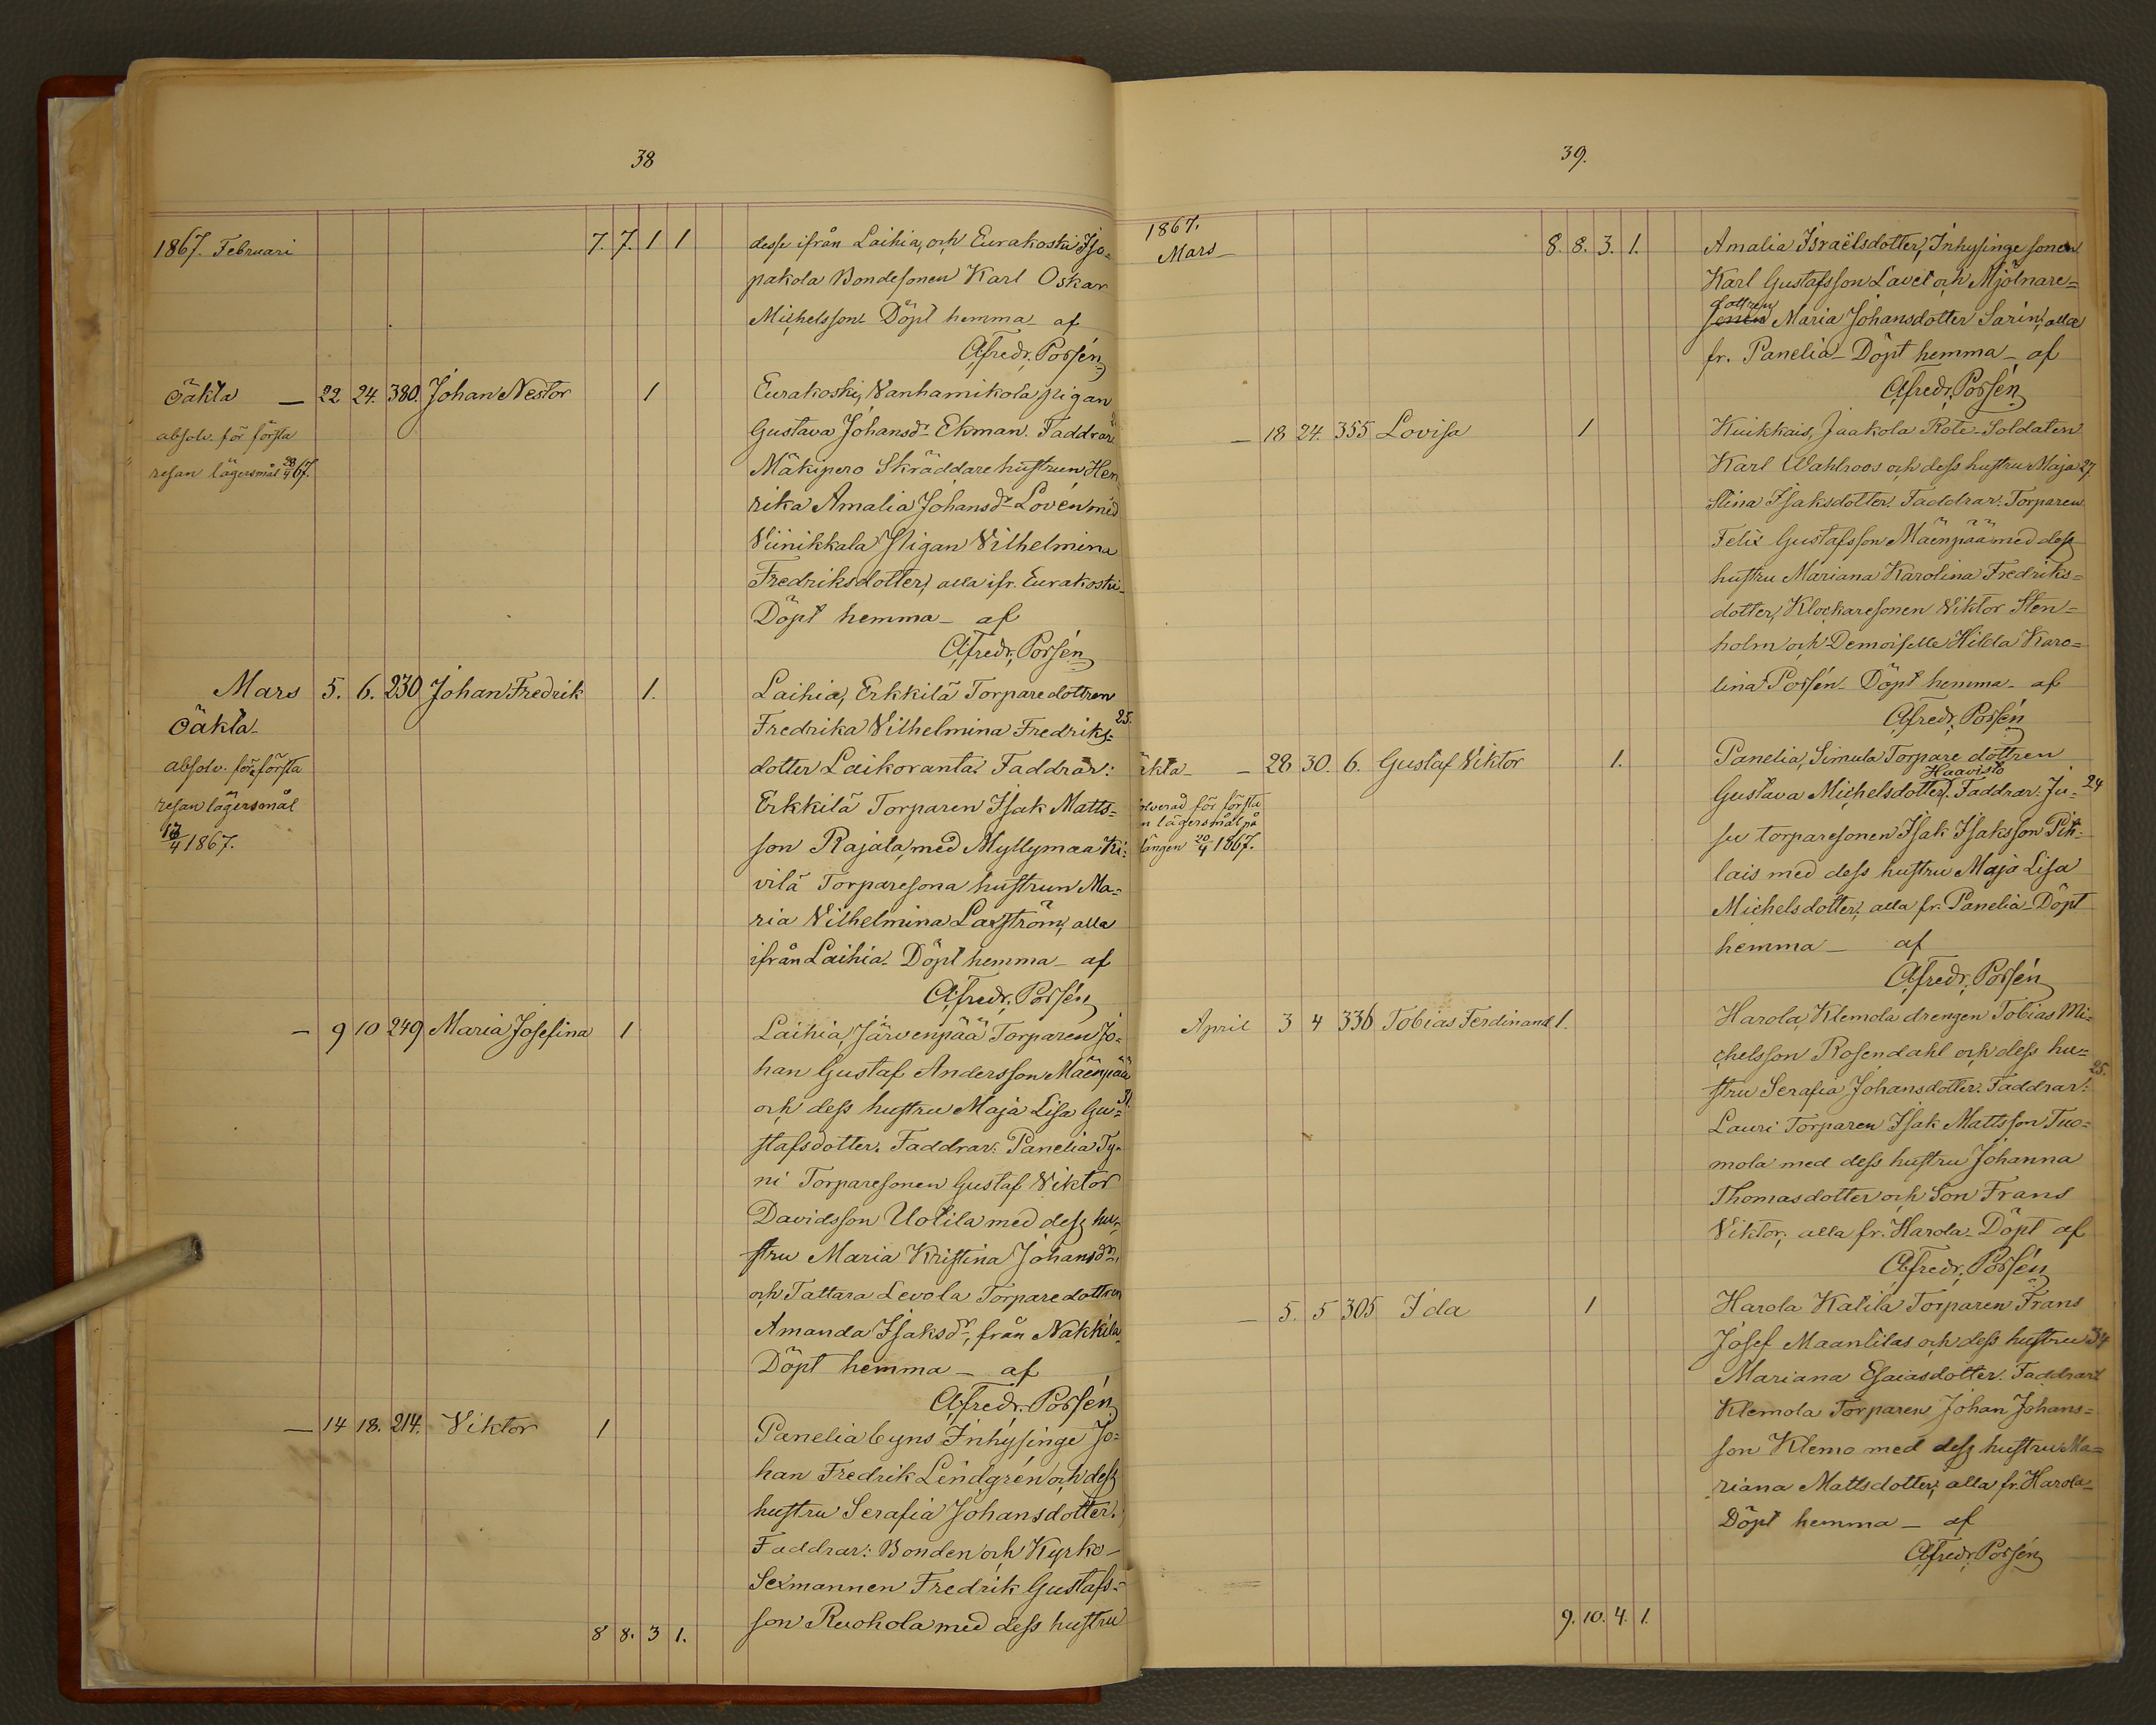 38
1867. Februari 7. 7. 1 1 desse ifrån Laihia, och Eurakoski Iso-
pakola Bondesonen Karl Oskar
Michelsson. Döpt hemma - af
A. Fredr. Porsén
Oäkta — 22 24. 380. Johan Nestor 1 Eurakoski, Vanhamikola pigan
absolv. för första Gustava Johansdr Ekman. Faddrar:
resan lägersmål 28/4 67. Mäkipero Skräddare hustrun Hen
rika Amalia Johansdr Lovén med
Viinikkala Pigan Vilhelmina
Fredriksdotter; alla ifr. Eurakoski -
Döpt hemma - af
A. Fredr. Porsén
Mars 5. 6. 230 Johan Fredrik 1. Laihia, Erkkilä Torparedottren
Oäkta - Fredrika Vilhelmina Fredriks= 25.
absolv. för första dotter Laikoranta. Faddrar:
resan lägersmål Erkkilä Torparen Isak Matts=
/4 1867. son Rajala, med Myllymaa Ki=
vilä Torparesona hustrun Ma=
ria Vilhelmina Laxström; alla
ifrån Laihia. Döpt hemma - af
A. Fredr. Porsén
— 9 10 249 Maria Josefina 1 Laihia, Järvenpää Torparen Jo=
han Gustaf Andersson Mäenpää
och dess hustru Maja Lisa Gu=
stafsdotter. Faddrar: Panelia Ty-
ni Torparesonen Gustaf Viktor
Davidsson Uotila med dess hu-
stru Maria Kristina Johansdr,
och Tattara Levola Torparedottren
Amanda Isaksdr, från Nakkila
Döpt hemma - af
A. Fredr. Porsén
— 14 18. 214. Viktor 1 Panelia byns Inhysinge Jo=
han Fredrik Lindgrén och dess
hustru Serafia Johansdotter.
Faddrar: Bonden och Kyrko-
Sexmannen Fredrik Gustafs=
8 8. 3 1. son Ruohola med dess hustru
39.
1867.
Mars - 8. 8. 3. 1. Amalia Israëlsdotter, Inhysinge sonen
Karl Gustafsson Lavet och Mjölnare=
dottren
sonen Maria Johansdotter Sarin; alla
fr. Panelia - Döpt hemma - af
A. Fredr. Porsén
— 18 24. 355 Lovisa 1 Kuikkais, Jaakola Rote-Soldaten
Karl Wahlroos och dess hustru Maja 27.
Stina Isaksdotter. Faddrar: Torparen
Felix Gustafsson Mäenpää med dess
hustru Mariana Karolina Fredriks=
dotter, Klockaresonen Viktor Sten-
holm och Demoiselle Hilda Karo=
lina Porsén - Döpt hemma - af
A. Fredr. Porsén
äkta - — 28 30. 6. Gustaf Viktor 1. Panelia, Simula Torpare dottren
Haavisto
Gustava Michelsdotter. Faddrar: Ju- 24
olverad för första
n lägersmål på su torparesonen Isak Isaksson Pih-
längen 20/4 1867. lais med dess hustru Maja Lisa
Michelsdotter; alla fr. Panelia - Döpt
hemma - af
A. Fredr. Porsén
April 3 4 336 Tobias Ferdinand 1. Harola, Klemola drengen Tobias Mi=
chelsson Rosendahl och dess hu= 25.
stru Serafia Johansdotter. Faddrar:
Lauri Torparen Isak Mattsson Tuo=
mola med dess hustru Johanna
Thomasdotter och Son Frans
Viktor; alla fr. Harola - Döpt af
A. Fredr. Porsén
— 5. 5 305 Ida 1 Harola Katila Torparen Frans
Josef Maantilas och dess hustru 34
Mariana Esaiasdotter. Faddrar:
Klemola Torparen Johan Johans=
son Klemo med dess hustru Ma=
riana Mattsdotter; alla fr. Harola -
Döpt hemma - af
A. Fredr. Porsén
9. 10. 4. 1.